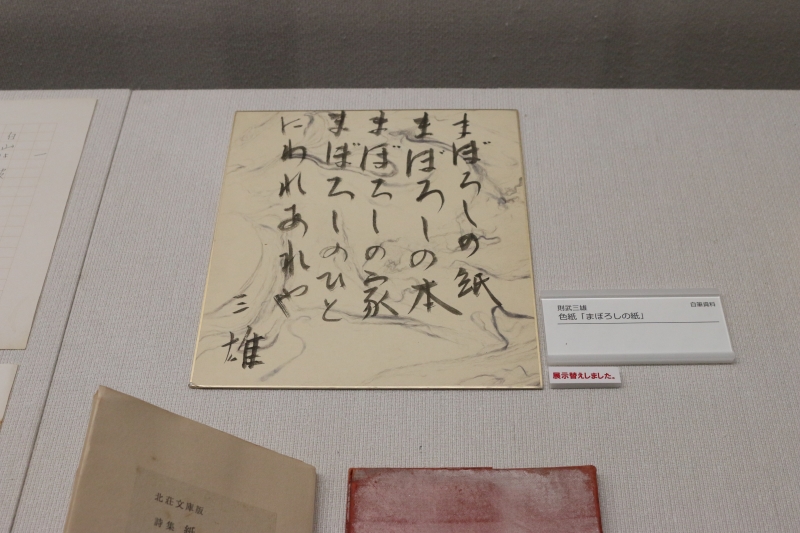 まぼろしの紙
まぼろしの本
まぼろしの家
まぼろしのひと
にわれあれや
三雄
則武三雄
自筆資料
色紙「まぼろしの紙」
展示替えしました。
北荘文庫版
詩集 紙